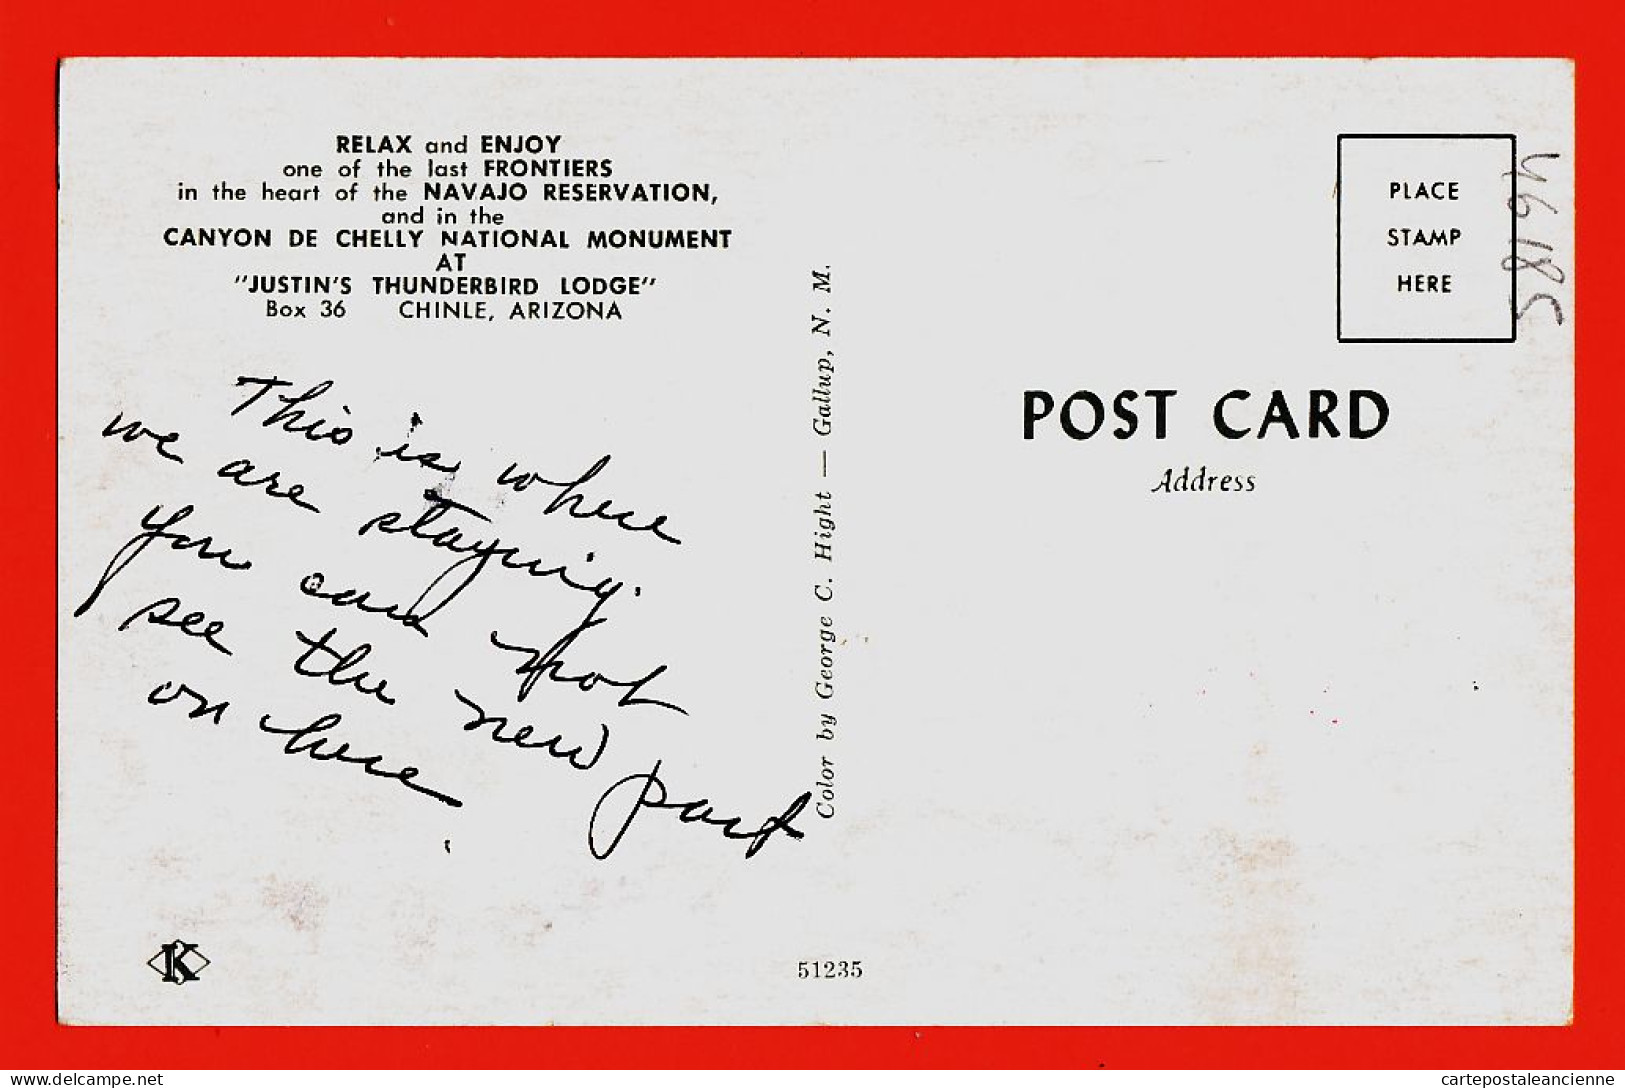 RELAX and ENJOY
one of the last FRONTIERS
in the heart of the NAVAJO RESERVATION,
and in the
CANYON DE CHELLY NATIONAL MONUMENT
AT
"JUSTIN'S THUNDERBIRD LODGE"
Box 36 CHINLE, ARIZONA
This is where
we are staying.
you can not
see the new part
on here.
K
51235
Color by George C. Hight — Gallup, N. M.
PLACE
STAMP
HERE
46185
POST CARD
Address
delcampe.net
cartepostaleancienne